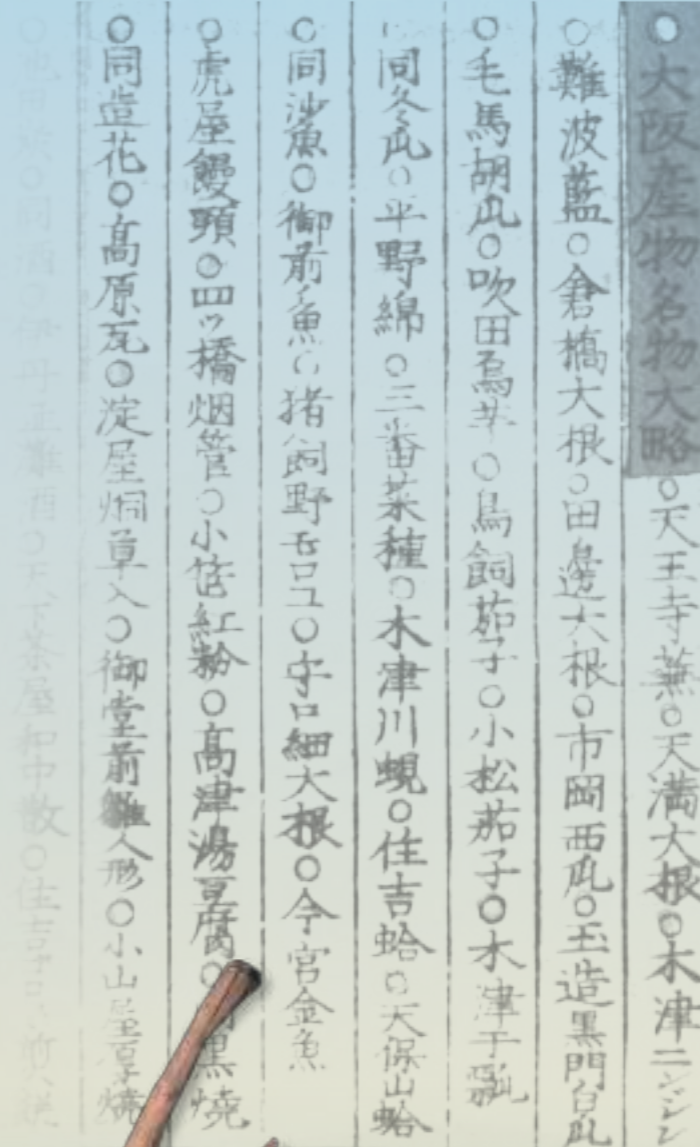 ○大阪産物名物大略○天王寺蕪○天満大根○木津ニンジン
○難波藍○倉橋大根○田邊大根○市岡西瓜○玉造黒門白瓜
○毛馬胡瓜○吹田烏芋○鳥飼茄子○小松茄子○木津干瓢
同冬瓜○平野綿○三番菜種○木津川蜆○住吉蛤○天保山蛤
○同沙魚○御前魚○猪飼野モロコ○守口細大根○今宮金魚
○虎屋饅頭○四ツ橋烟管○小紅粉○高津湯豆腐○黒焼
○同造花○高原瓦○淀屋烟草入○御堂前雛人形○小山屋厚焼
○同酒○伊丹正雜酒○天下茶屋和中散○住吉